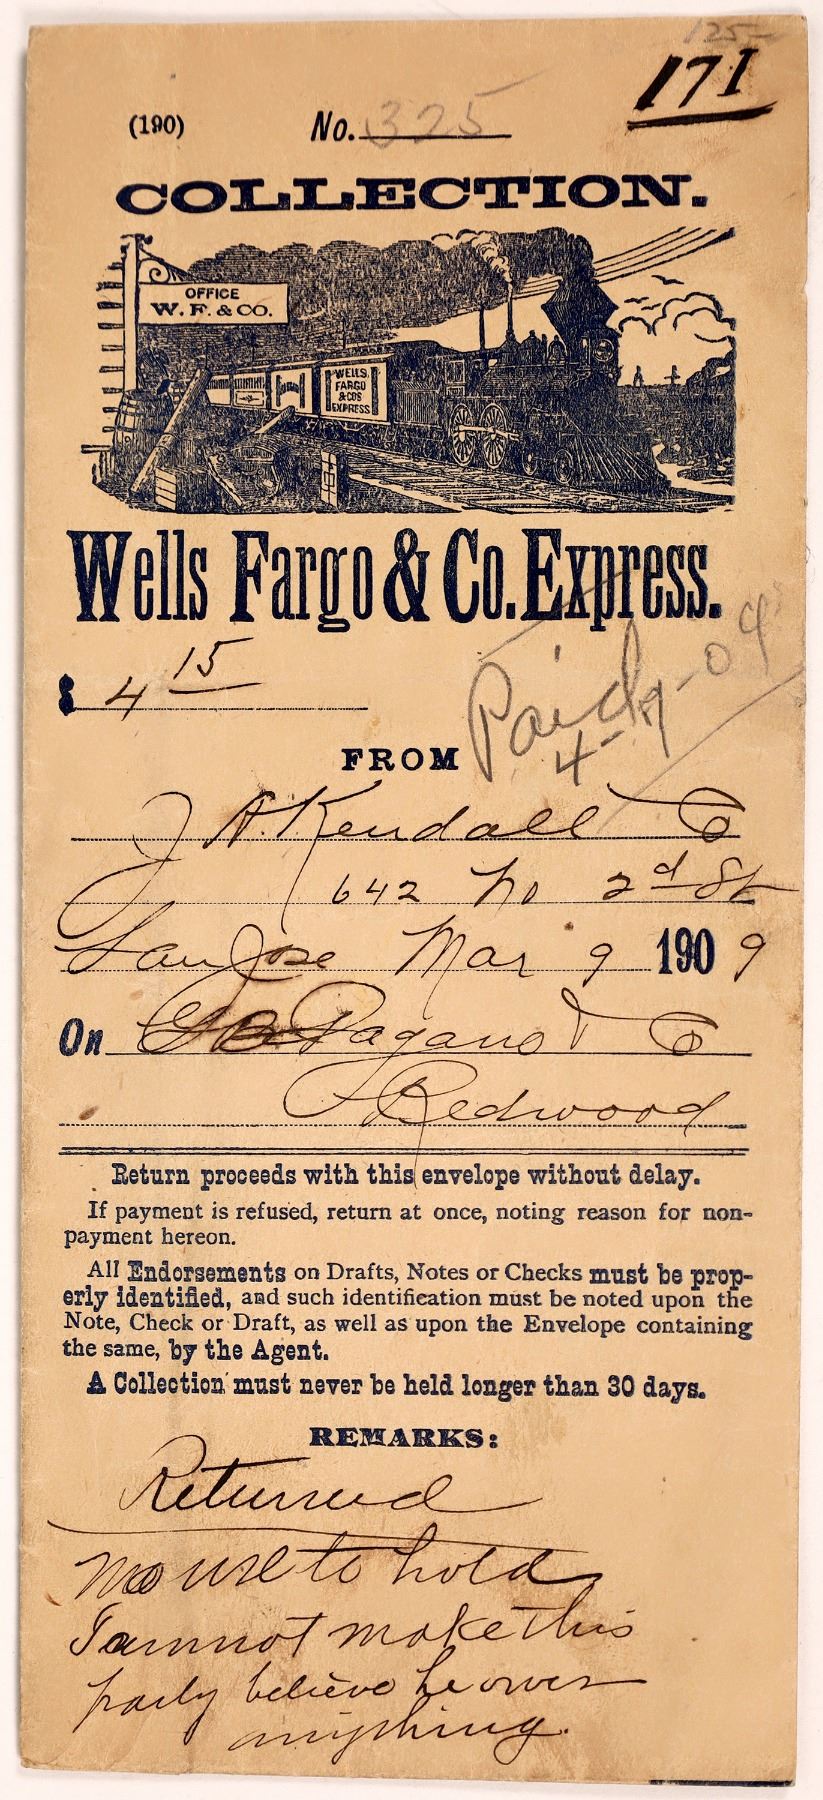 125-
171
(190) No. 325
COLLECTION.
OFFICE
W. F. & CO.
WELLS
FARGO
& CO'S
EXPRESS
Wells Fargo & Co. Express.
$ 4 15
Paid
4-
FROM
J A. Kendall Co
642 No 2d St
San Jose Mar 9 1909
On Pagano & Co
Redwood
Return proceeds with this envelope without delay.
If payment is refused, return at once, noting reason for non-
payment hereon.
All Endorsements on Drafts, Notes or Checks must be prop-
erly identified, and such identification must be noted upon the
Note, Check or Draft, as well as upon the Envelope containing
the same, by the Agent.
A Collection must never be held longer than 30 days.
REMARKS:
Returned
no use to hold
I cannot make this
party believe he owes
anything.